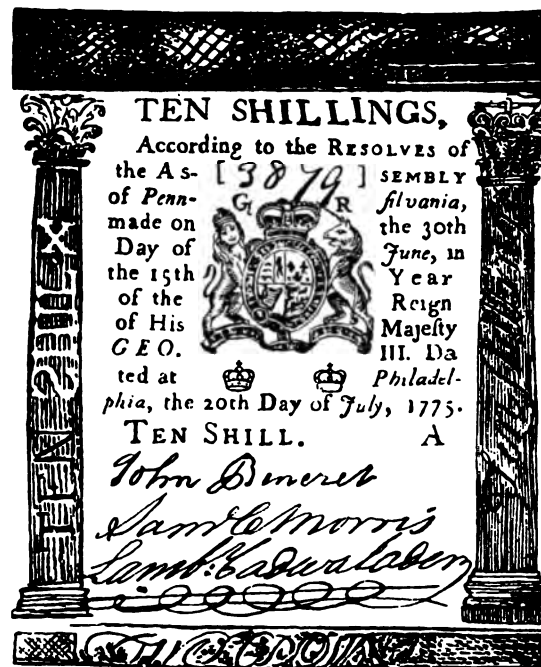 TEN SHILLINGS,
According to the RESOLVES of
the As- [ 3879 ] SEMBLY
of Penn- G R ſilvania,
made on the 30th
Day of June, in
the 15th Year
of the Reign
of His Majeſty
GEO. III. Da
ted at Philadel-
phia, the 20th Day of July, 1775.
TEN SHILL. A
John Benezet
Saml C Morris
Lambt Cadwalader
TEN SHILL